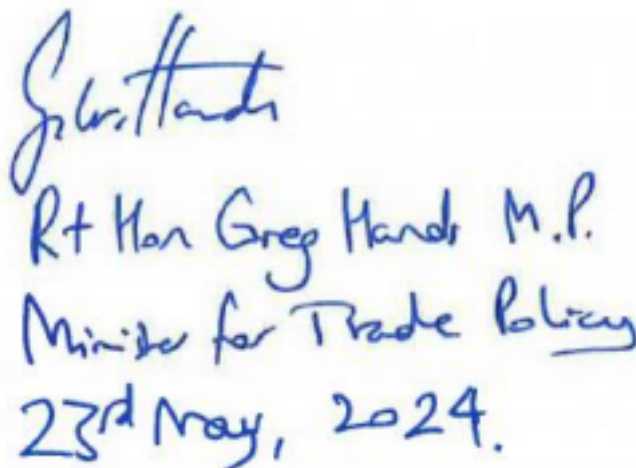 G.W. Hands
Rt Hon Greg Hands M.P.
Minister for Trade Policy
23rd May, 2024.